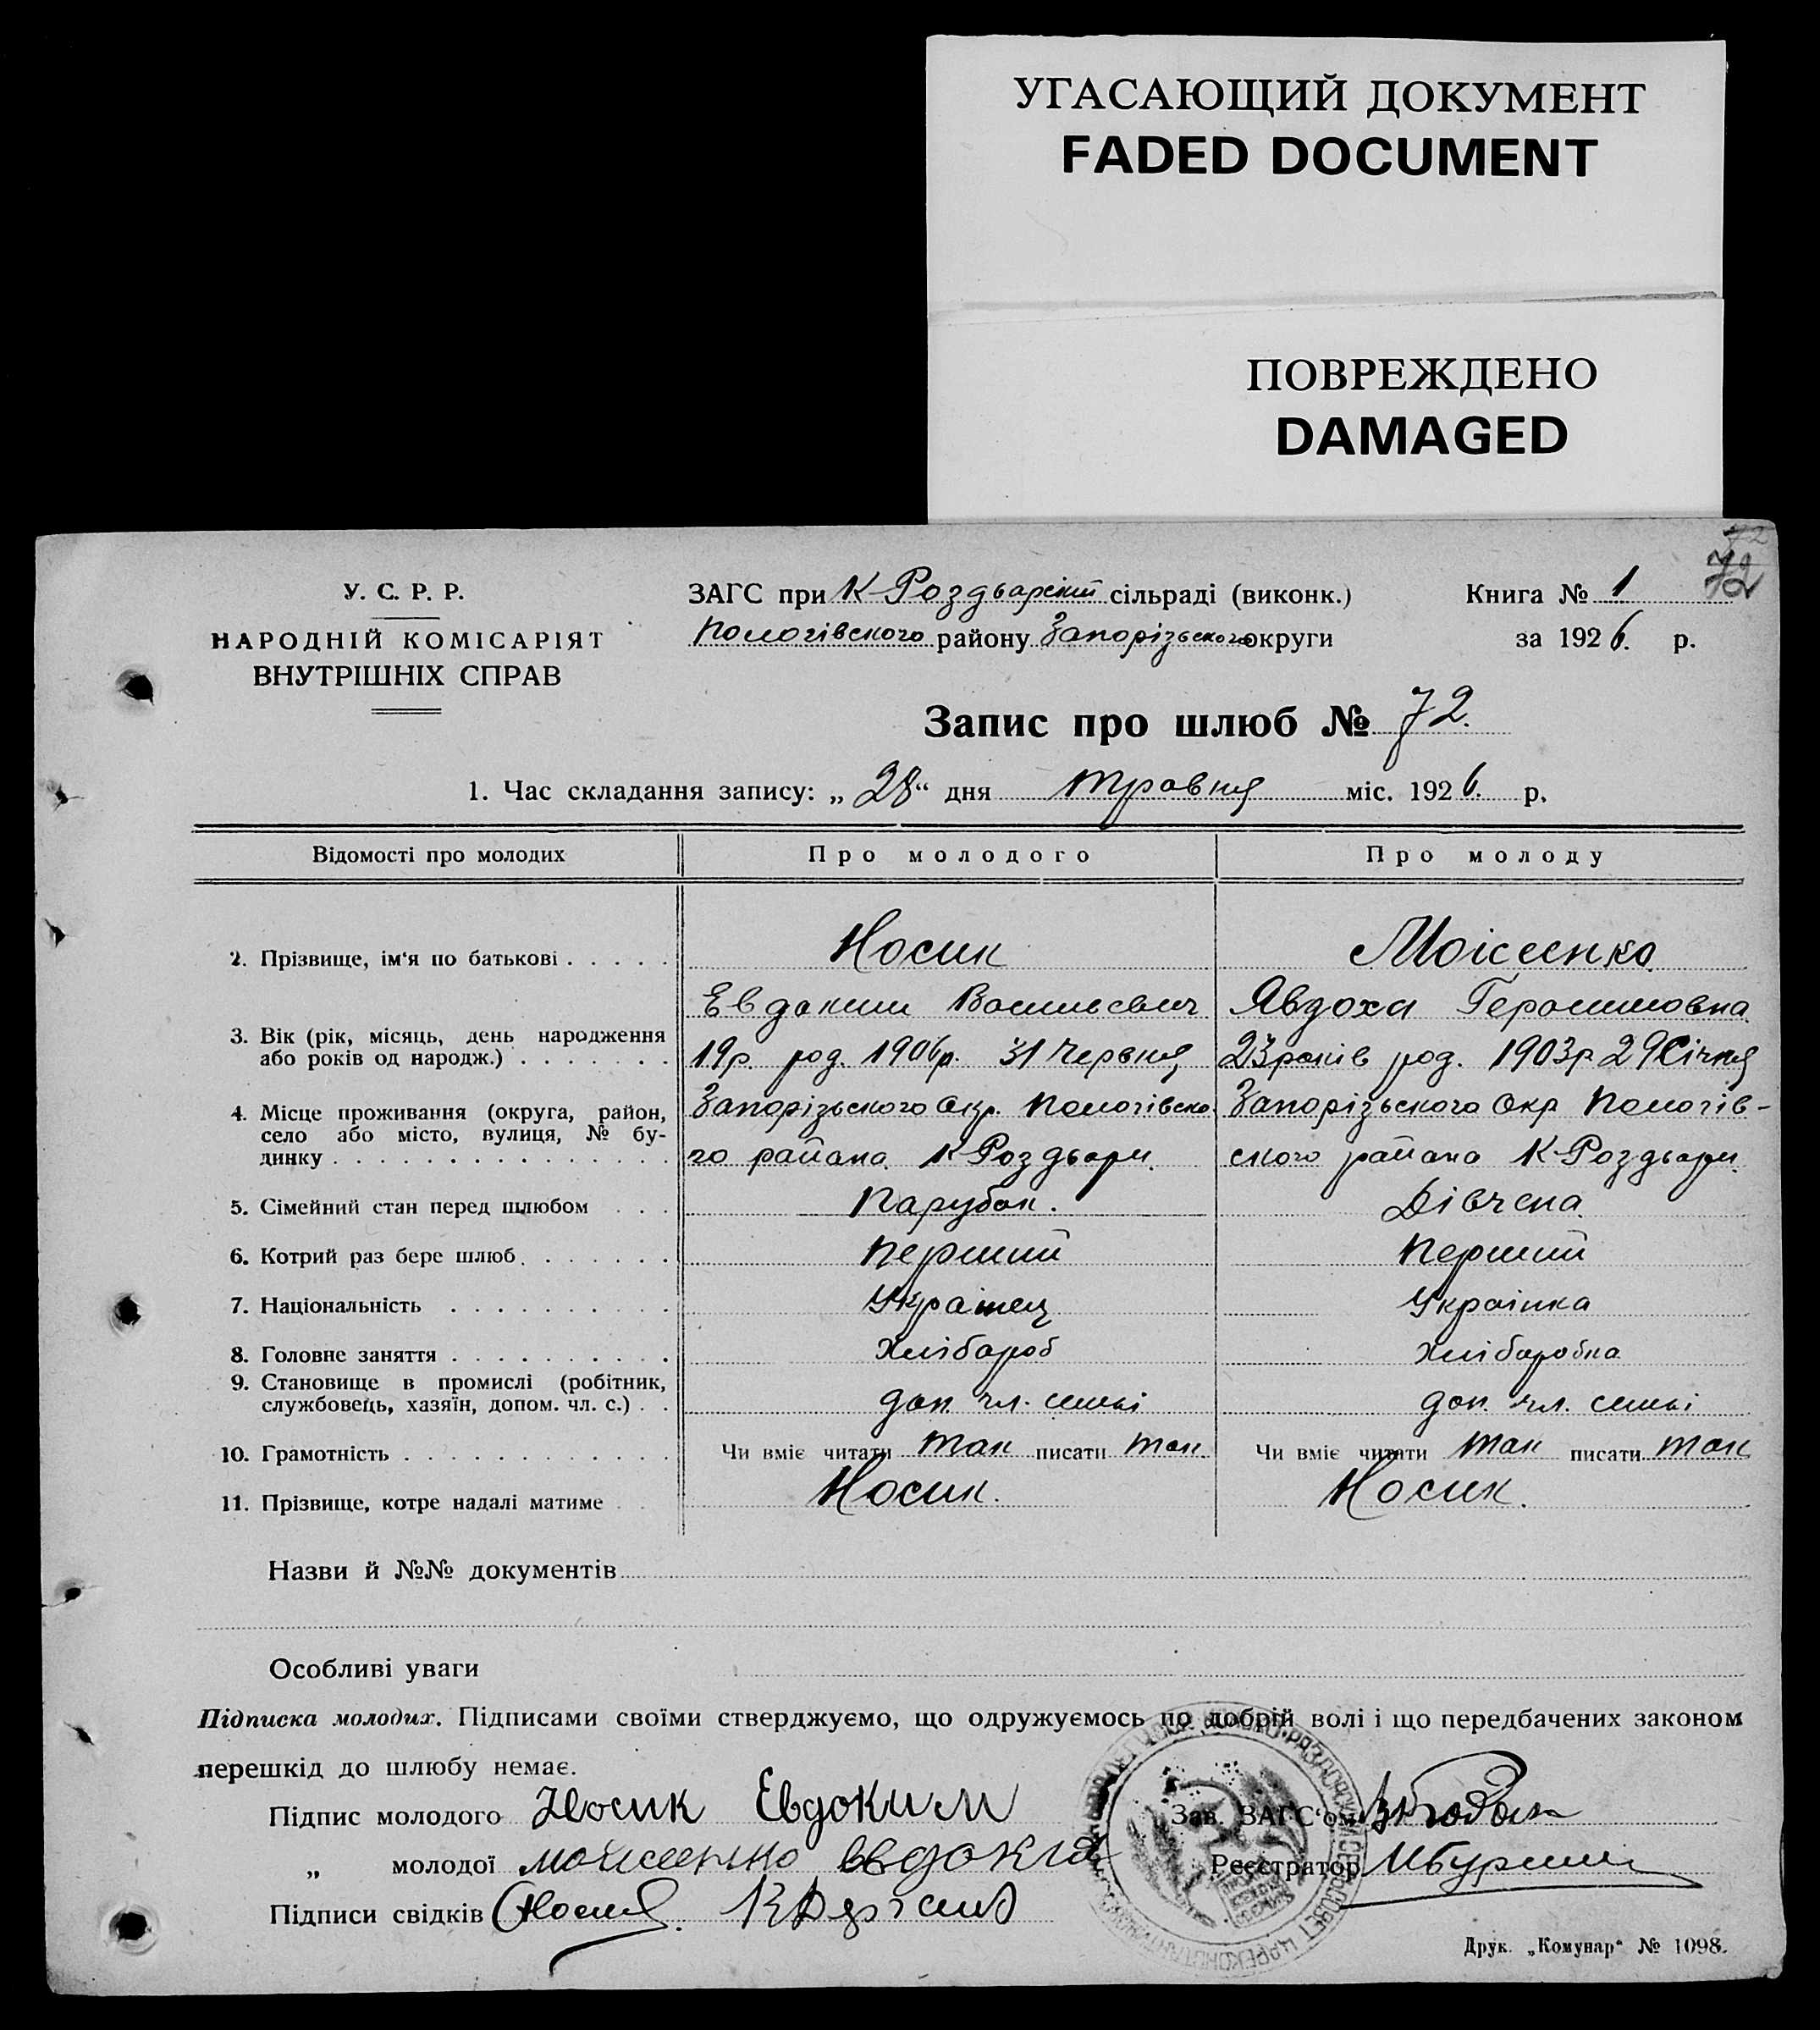 УГАСАЮЩИЙ ДОКУМЕНТ
FADED DOCUMENT
ПОВРЕЖДЕНО
DAMAGED
72
72
У. С. Р. Р.
НАРОДНІЙ КОМІСАРІЯТ
ВНУТРІШНІХ СПРАВ
ЗАГС при К-Роздьарскій сільраді (виконк.)
Пологівского району Запорізьского округи
Книга № 1
за 1926. р.
Запис про шлюб № 72.
1. Час складання запису: „28“ дня травня міс. 1926. р.
Відомості про молодих
Про молодого
Про молоду
2. Прізвище, ім'я по батькові
Носик
Моісеенко
Евдоким Васильевич
Явдоха Герасимовна
3. Вік (рік, місяць, день народження
або років од народж.)
19р. род. 1906р. 31 Червня
23років род. 1903р 29 Січня
4. Місце проживання (округа, район,
село або місто, вулиця, № бу-
динку
Запорізьского Окр. Пологівско
го района К-Роздьари.
Запорізьского Окр Пологів-
ского района К-Роздьари.
5. Сімейний стан перед шлюбом
Парубок.
Дівчена
6. Котрий раз бере шлюб
Перший
Перший
7. Національність
Українец
Українка
8. Головне заняття
Хлібароб
Хлібаробка
9. Становище в промислі (робітник,
службовець, хазяїн, допом. чл. с.)
доп. чл. симьі
доп. чл. симьі
10. Грамотність
Чи вміє читати так писати так
Чи вміє читати так писати так
11. Прізвище, котре надалі матиме
Носик.
Носик.
Назви й №№ документів
Особливі уваги
Підписка молодих. Підписами своїми стверджуємо, що одружуємось по добрій волі і що передбачених законом
перешкід до шлюбу немає.
Підпис молодого Носик Евдоким
Зав. ЗАГС'ом
„ молодої мойсеенко евдокія
Реєстратор
Підписи свідків Носик
Друк. „Комунар“ № 1098.